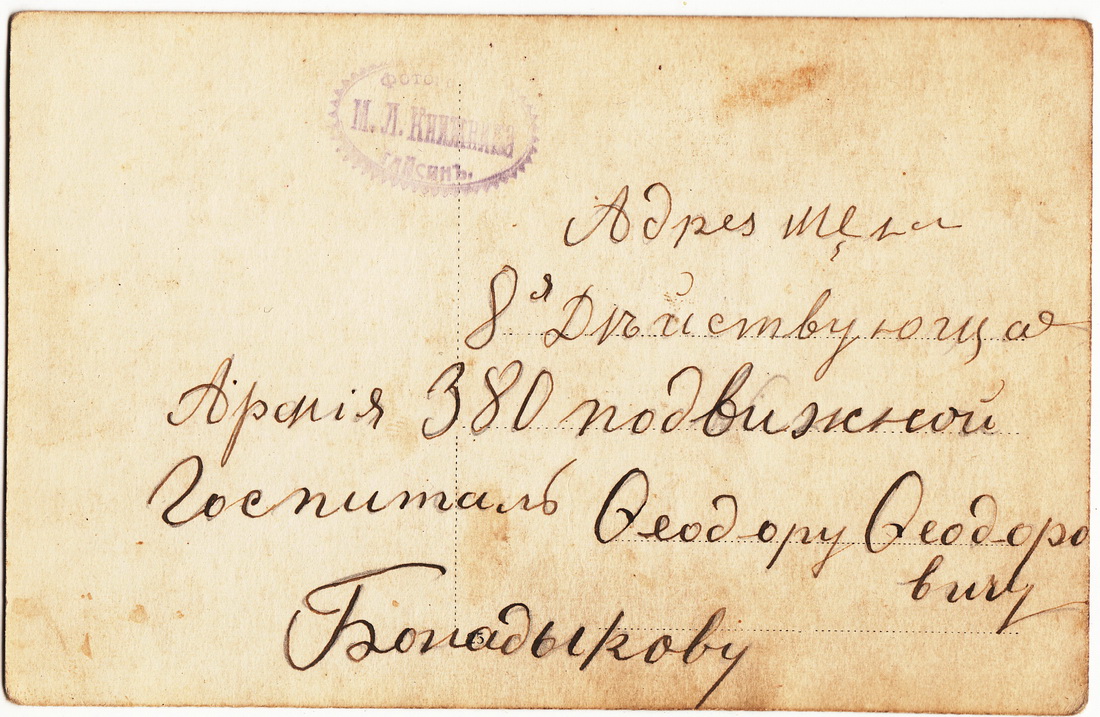 Фото.
М. Л. Княжника
Гайсинъ.
Адрез
8я Дѣйствующая
Армія 380 подвижной
Госпиталь Ѳеодору Ѳеодоро
вичу
Бонадыкову